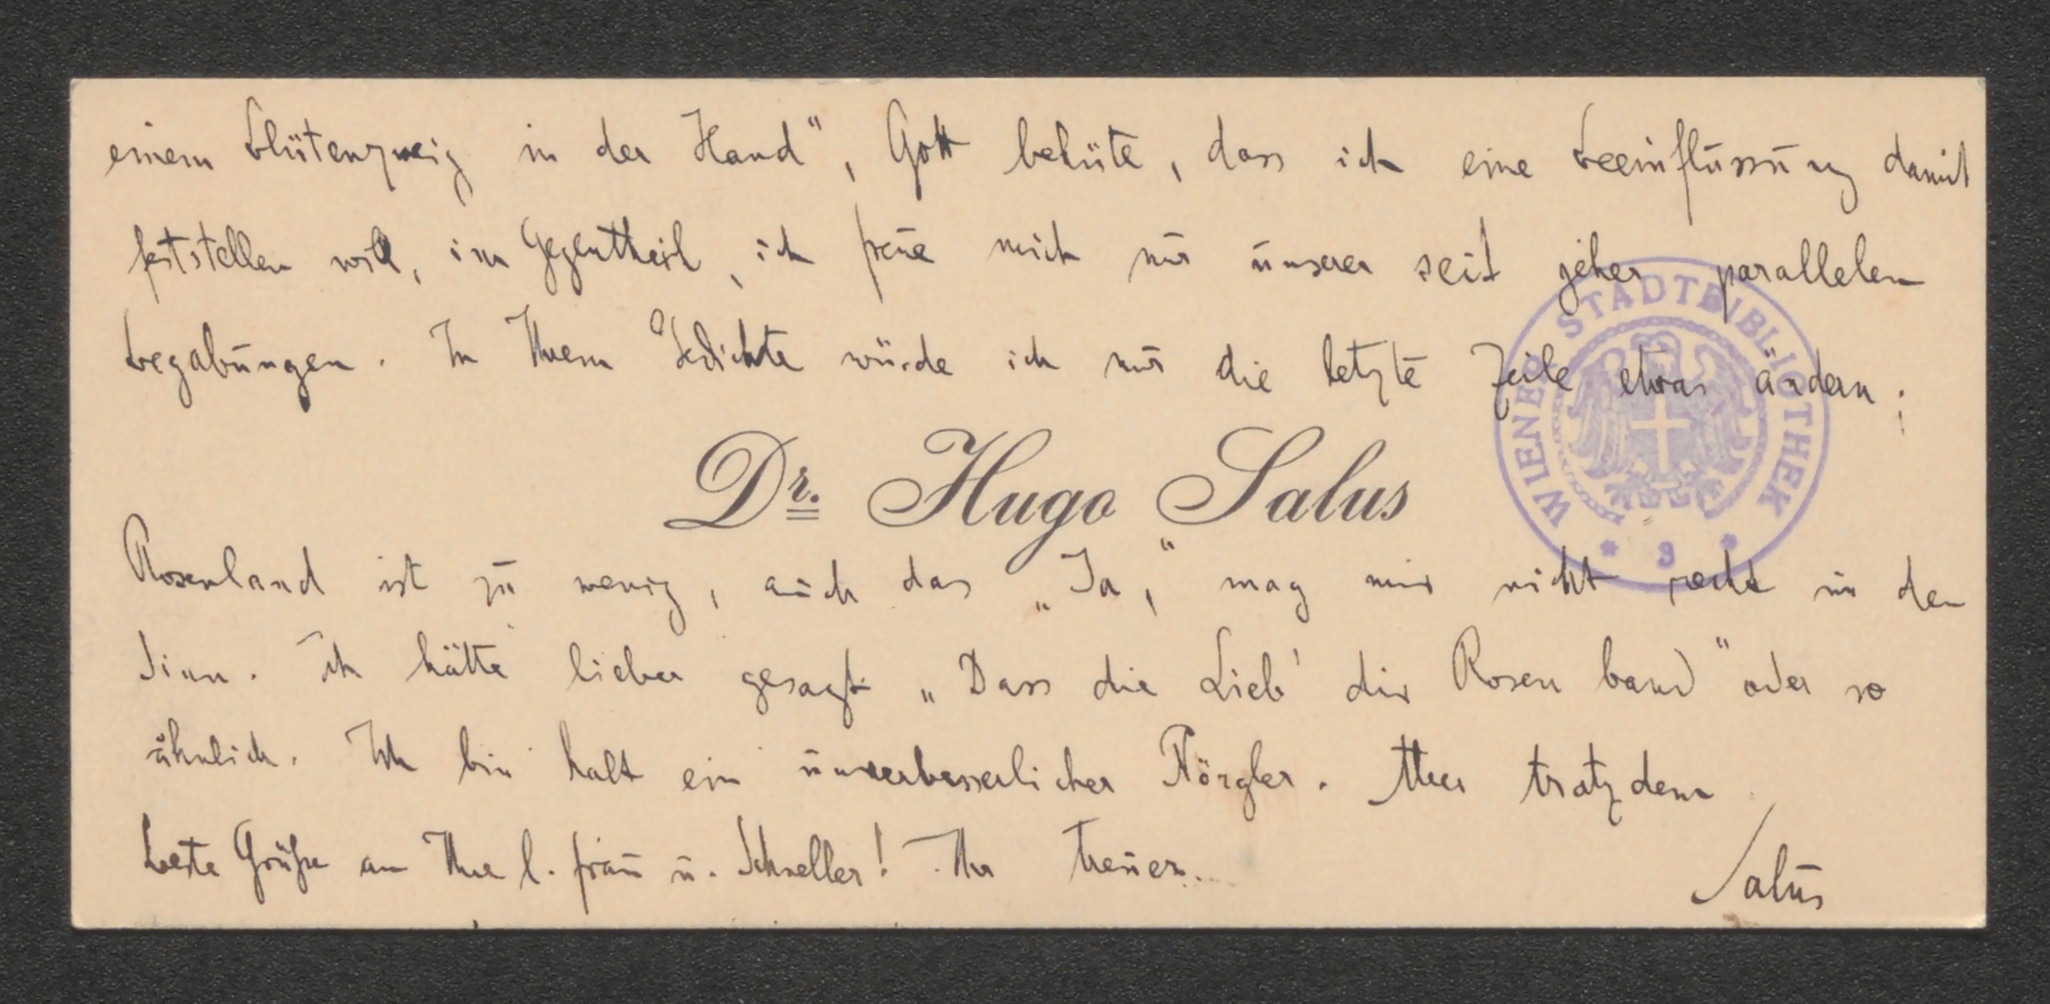 einem Blütenzweig in der Hand", Gott behüte, dass ich eine Beeinflussung damit
feststellen will, im Gegentheil, ich freue mich nur unserer seit jeher parallelen
Begabungen. In Ihrem Gedichte würde ich nur die letzte Zeile etwas ändern;
WIENER STADTBIBLIOTHEK
* 9 *
Dr. Hugo Salus
Rosenland ist zu wenig, auch das „Ja," mag mir nicht recht in den
Sinn. Ich hätte lieber gesagt „Dass die Lieb' dir Rosen band" oder so
ähnlich. Ich bin halt ein unverbesserlicher Nörgler. Aber trotzdem
beste Grüße an Ihre l. Frau u. Schneller! Ihr treuer
Salus